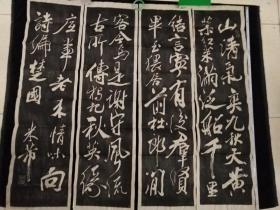 山清氣爽九秋天黃
菊紅茱滿泛船千里
結言寧有後羣賢
畢至猥居前杜郎閒
客今焉是謝守風流
古所傳獨把秋英緣
底事老來情味向
詩篇 楚國 米芾